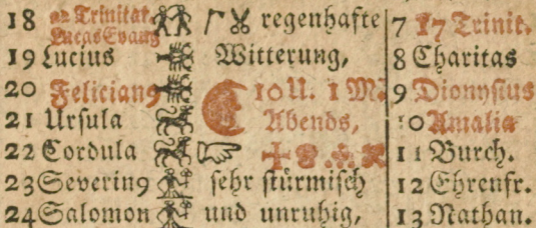 18 22 Trinitat. regenhafte 7 17 Trinit.
Lucas Evang
19 Lucius Witterung, 8 Charitas
20 Felician9 10 U. 1 M. 9 Dionysius
21 Ursula Abends, 10 Amalia
22 Cordula 11 Burch.
23 Severin9 sehr stürmisch 12 Ehrenfr.
24 Salomon und unruhig, 13 Nathan.